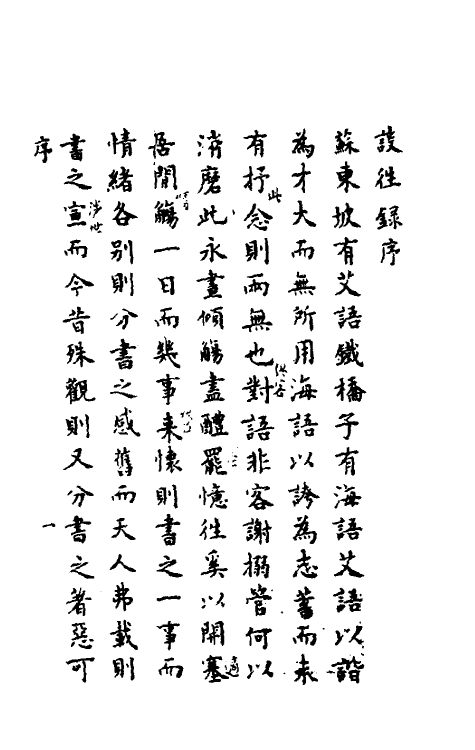 談往錄序
蘇東坡有艾語鐵橋子有海語艾語以諧
為才大而無所用海語以誇為志蓄而未
有抒此念則兩無也對語非客謝搦管何以
消磨此永晝傾觴盡醴罷憶往奚以開塞
居間觴一日而幾事来懷則書之一事而
情緒各別則分書之感舊而天人弗載則
書之宣而今昔殊觀則又分書之著惡可
序
一